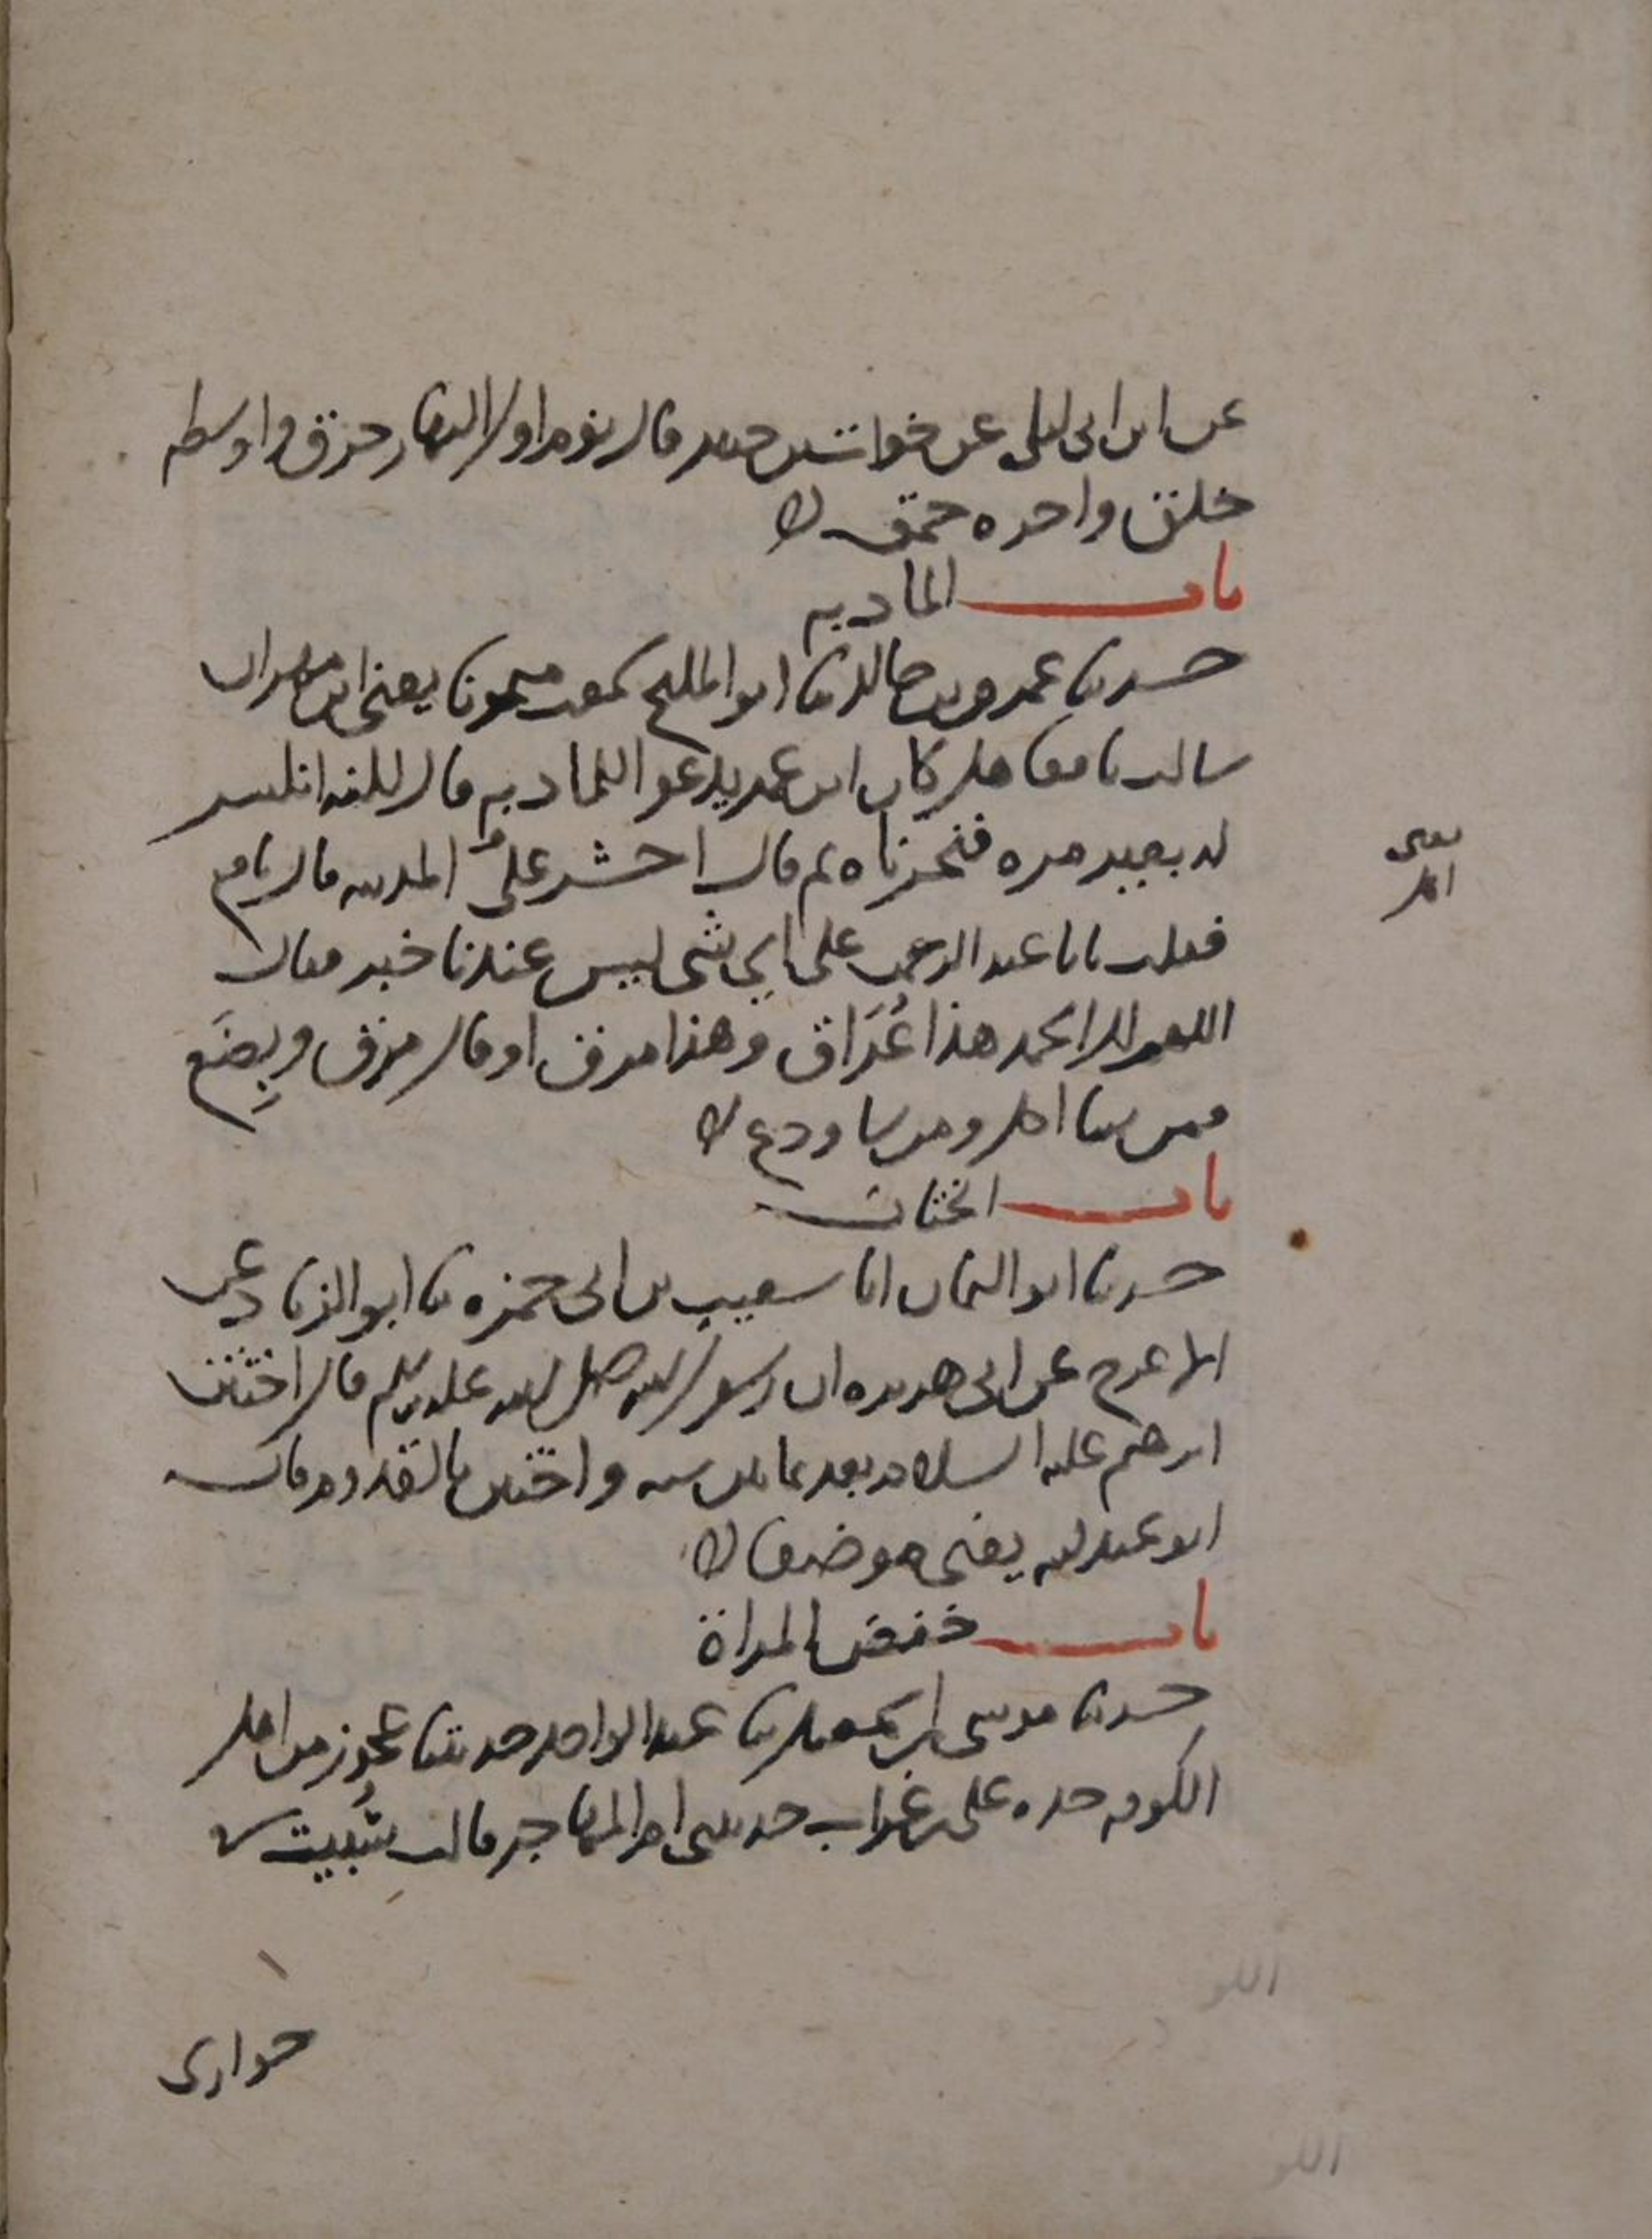 عن ابن ابي ليلى عن خوات بن جبير قال نوم اول النهار خرق واوسطه
خلق واخره حمق
باب المادبه
حدثنا عمرو بن خالد نا ابو المليح سمعت ميمونا يعني ابن مهران
سالت نافعا هل كان ابن عمر يدعو للمادبه قال لكنه انكسر
له بعير مره فنحرناه ثم قال احشر علي المدينه قال نافع
فقلت يابا عبد الرحمن على اي شي ليس عندنا خبز فقال
اللهم لك الحمد هذا عُرَاق وهذا مرق او قال مرق وبِضَع
فمن شا اكل ومن شا ودع
باب الختان
حدثنا ابو اليمان انا شعيب بن ابي حمزه نا ابو الزناد عن
الاعرج عن ابي هريره ان رسول الله صلى الله عليه وسلم قال اختتن
ابرهيم عليه السلام بعد ثمانين سنه واختتن بالقدوم قال
ابو عبد الله يعني موضعا
باب خفض المراة
حدثنا موسى بن اسمعيل نا عبد الواحد حدثتنا عجوز من اهل
الكوفه جده علي بن غراب حدثتني ام المهاجر قالت سُبيت
جواري
يعني
اهل